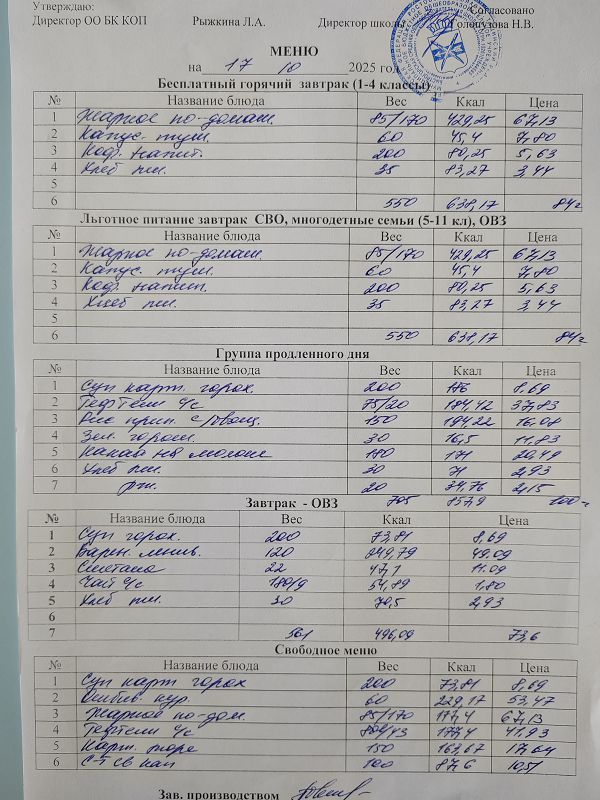 Утверждаю: Согласовано
Директор ОО БК КОП Рыжкина Л.А. Директор школы Голопузова Н.В.
МЕНЮ
на 17 10 2025 год
Бесплатный горячий завтрак (1-4 классы)
№ Название блюда Вес Ккал Цена
1 Жаркое по-домаш. 85/170 429,25 67,13
2 Капус. туш. 60 45,4 7,80
3 Коф. напит. 200 80,25 5,63
4 Хлеб пш. 35 83,27 3,44
5
6 550 638,17 84=
Льготное питание завтрак СВО, многодетные семьи (5-11 кл), ОВЗ
№ Название блюда Вес Ккал Цена
1 Жаркое по-домаш. 85/170 429,25 67,13
2 Капус. туш. 60 45,4 7,80
3 Коф. напит. 200 80,25 5,63
4 Хлеб пш. 35 83,27 3,44
5
6 550 638,17 84=
Группа продленного дня
№ Название блюда Вес Ккал Цена
1 Суп карт. горох. 200 176 8,69
2 Тефтели с/с 75/20 184,42 37,83
3 Рис прип. с/овощ. 150 194,22 16,08
4 Зел. горош. 30 16,5 11,83
5 Какао на молоке 180 171 20,49
6 Хлеб пш. 30 71 2,93
7 рж. 20 34,76 2,15
Завтрак - ОВЗ 705 857,9 100=
№ Название блюда Вес Ккал Цена
1 Суп горох. 200 73,81 8,69
2 Варен. ленив. 120 249,79 49.09
3 Сметана 22 47,1 11.09
4 Чай с/с 180/9 54,89 1,80
5 Хлеб пш. 30 70,5 2,93
6
7 561 496,09 73,6
Свободное меню
№ Название блюда Вес Ккал Цена
1 Суп карт горох 200 73,81 8,69
2 Отбив. кур. 60 229,17 53,47
3 Жаркое по-дом. 85/170 177,4 67,13
4 Тефтели с/с 177,4 41,93
5 Карт. пюре 150 163,67 17,64
6 С-т св кап 100 87,6 10,51
Зав. производством